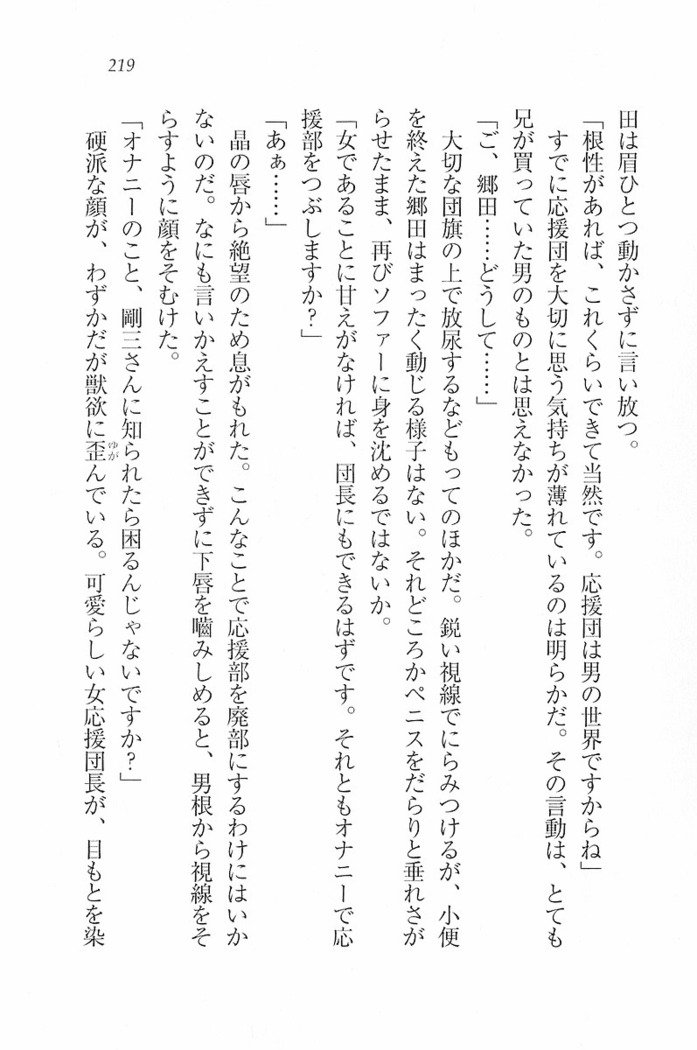 219
田は眉ひとつ動かさずに言い放つ。
「根性があれば、これくらいできて当然です。応援団は男の世界ですからね」
すでに応援団を大切に思う気持ちが薄れているのは明らかだ。その言動は、とても
兄が買っていた男のものとは思えなかった。
「ご、郷田……どうして……」
大切な団旗の上で放尿するなどもってのほかだ。鋭い視線でにらみつけるが、小便
を終えた郷田はまったく動じる様子はない。それどころかペニスをだらりと垂れさが
らせたまま、再びソファーに身を沈めるではないか。
「女であることに甘えがなければ、団長にもできるはずです。それともオナニーで応
援部をつぶしますか?」
「あぁ……」
晶の唇から絶望のため息がもれた。こんなことで応援部を廃部にするわけにはいか
ないのだ。なにも言いかえすことができずに下唇を嚙みしめると、男根から視線をそ
らすように顔をそむけた。
「オナニーのこと、剛三さんに知られたら困るんじゃないですか?」
硬派な顔が、わずかだが獣欲に歪んでいる。可愛らしい女応援団長が、目もとを染
ゆが